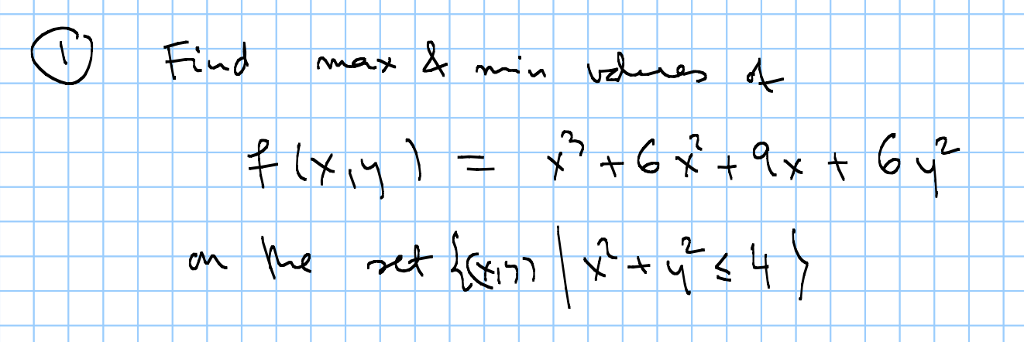 ① Find max & min values of
f(x,y) = x³ + 6x² + 9x + 6y²
on the set {(x,y) | x² + y² ≤ 4}